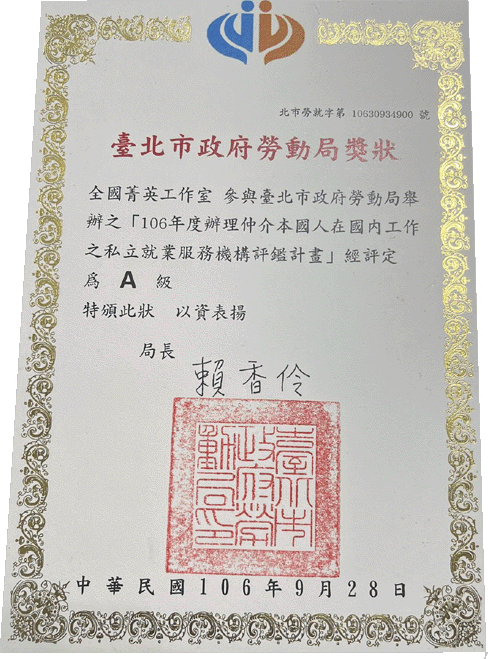 北市勞就字第 10630934900 號
臺北市政府勞動局獎狀
全國菁英工作室 參與臺北市政府勞動局舉
辦之「106年度辦理仲介本國人在國內工作
之私立就業服務機構評鑑計畫」經評定
為 A 級
特頒此狀 以資表揚
局長 賴香伶
臺北市政府勞動局印
中華民國106年9月28日